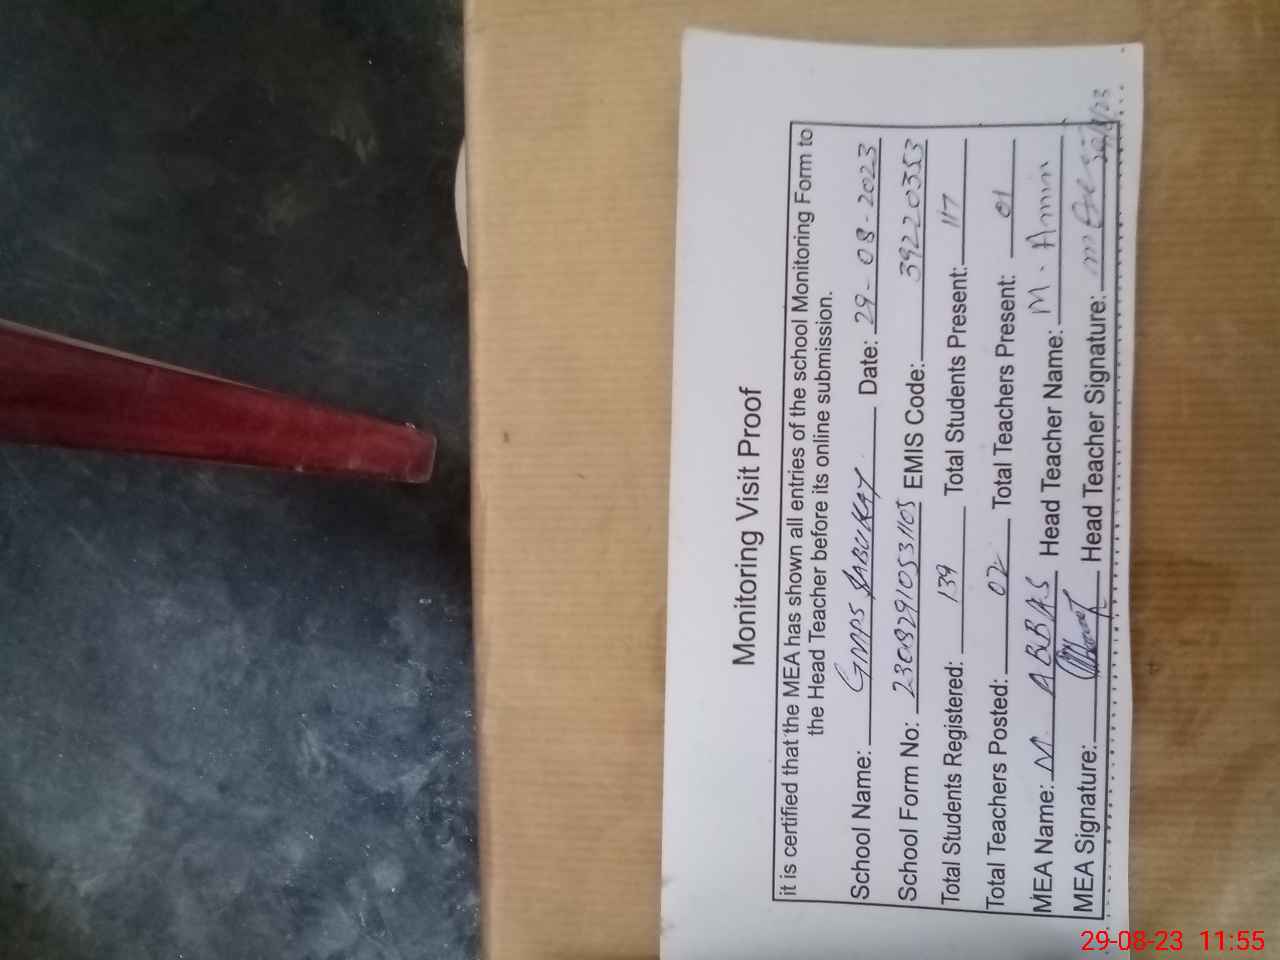 Monitoring Visit Proof
it is certified that the MEA has shown all entries of the school Monitoring Form to
the Head Teacher before its online submission.
School Name: GMPS SABUKAY Date: 29-08-2023
School Form No: 23082910531105 EMIS Code: 39220353
Total Students Registered: 139 Total Students Present: 117
Total Teachers Posted: 02 Total Teachers Present: 01
MEA Name: M. ABBAS Head Teacher Name: M. Amin
MEA Signature: Head Teacher Signature:
29-08-23 11:55